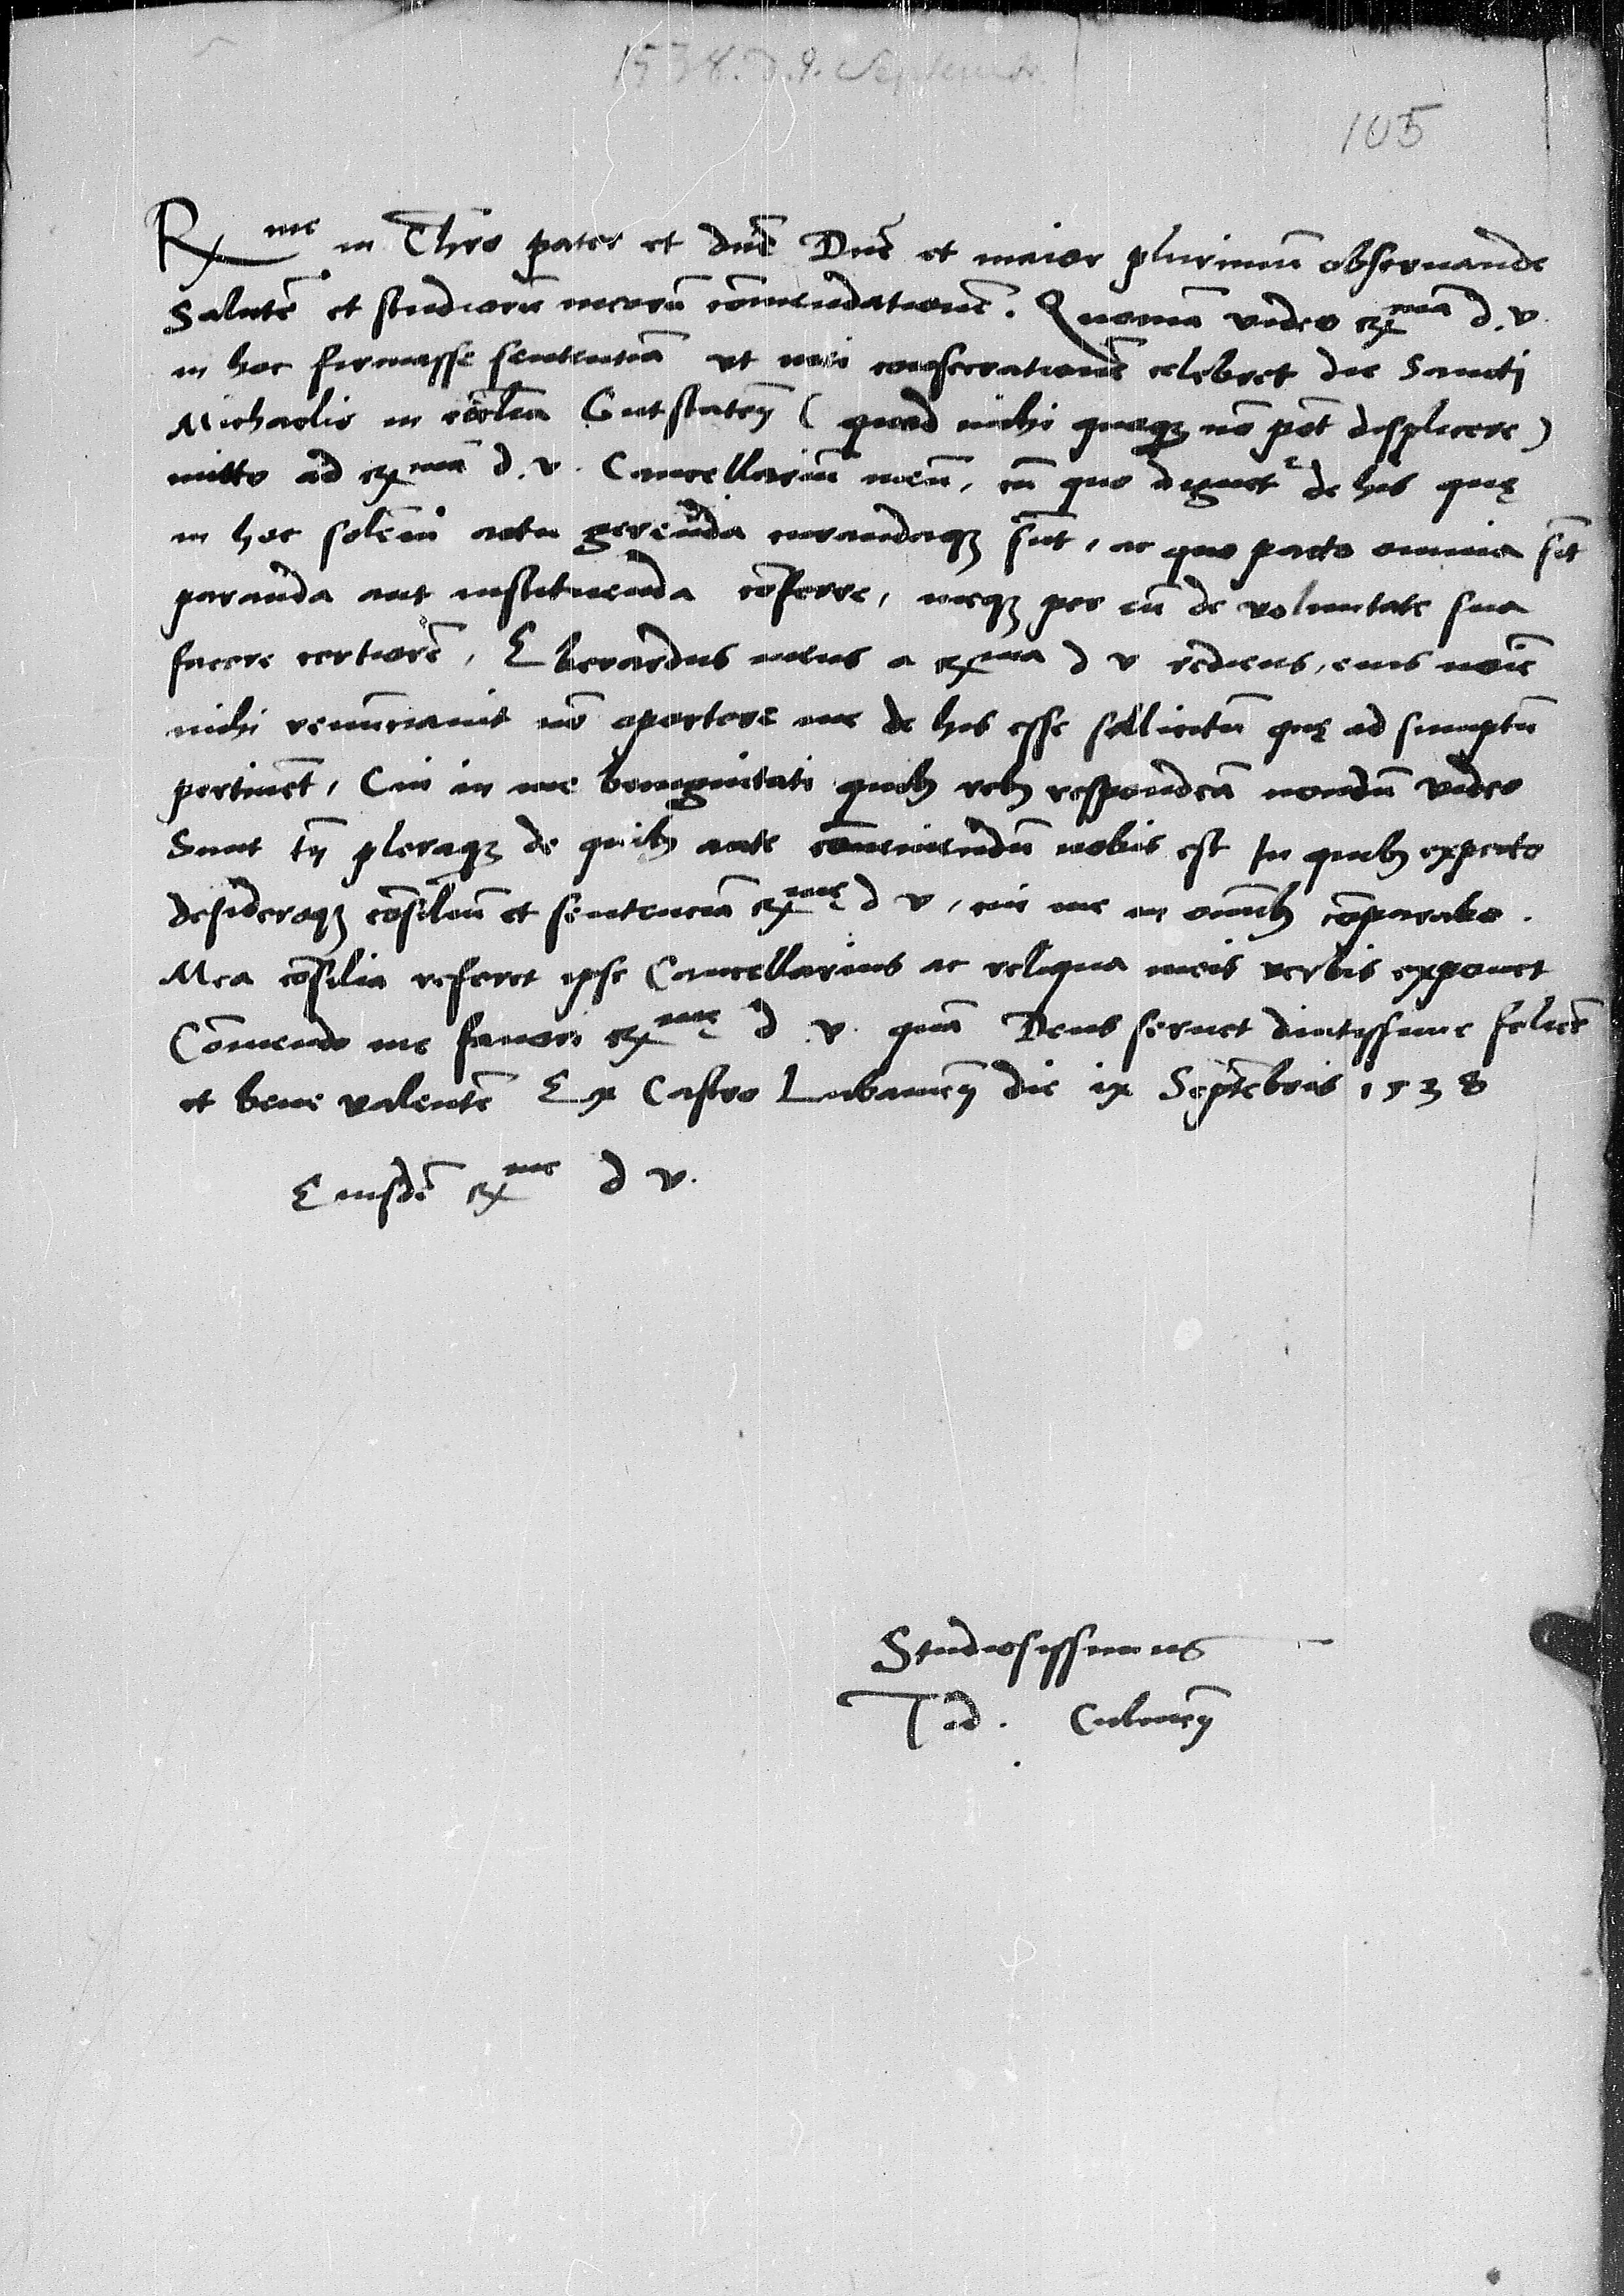 1538. d. 9. Septemb.
105
Rx^me in Chr̃o pater et dñe Dñe et maior plurimũ obseruande
Salutẽ et studiorũ meorũ cõmendationẽ. Quoniã video rx^mã d. v.
in hoc firmasse sententiã vt mei consecrationẽ celebret die Sancti
Michaelis in eccl̃ia Gutstateñ (quod michi quoqȝ nõ põt displicere)
mitto ad rx^mã d. v. Cancellariũ meũ, cũ quo dignetur de his quę
in hoc solẽni actu gerenda curandaqȝ sũt, ac quo pacto omnia sĩt
paranda aut instituenda cõferre, meqȝ per eũ de voluntate sua
facere certiorẽ, Eberardus meus a rx^ma d v rediens, eius noĩe
michi renunciauit nõ oportere me de his esse sollicitũ quę ad sumptũ
pertinẽt, Cui in me benignitati quibȝ rebȝ respondeã nondũ video
Sunt tñ pleraqȝ de quibȝ ante cõueniendũ nobis est In quibȝ expecto
desideroqȝ cõsiliũ et sentenciã rx^mę d v, cui me in omĩbȝ cõparabo.
Mea cõsilia referet ipse Cancellarius ac reliqua meis verbis exponet
Cõmendo me fauori rx^mę d v. quã Deus seruet diutissime felicẽ
et bene valentẽ Ex Castro Lubauieñ die ix Septẽbris 1538
Eiusdẽ rx^me d v.
Studiosissimus
Tid. Culmeñ